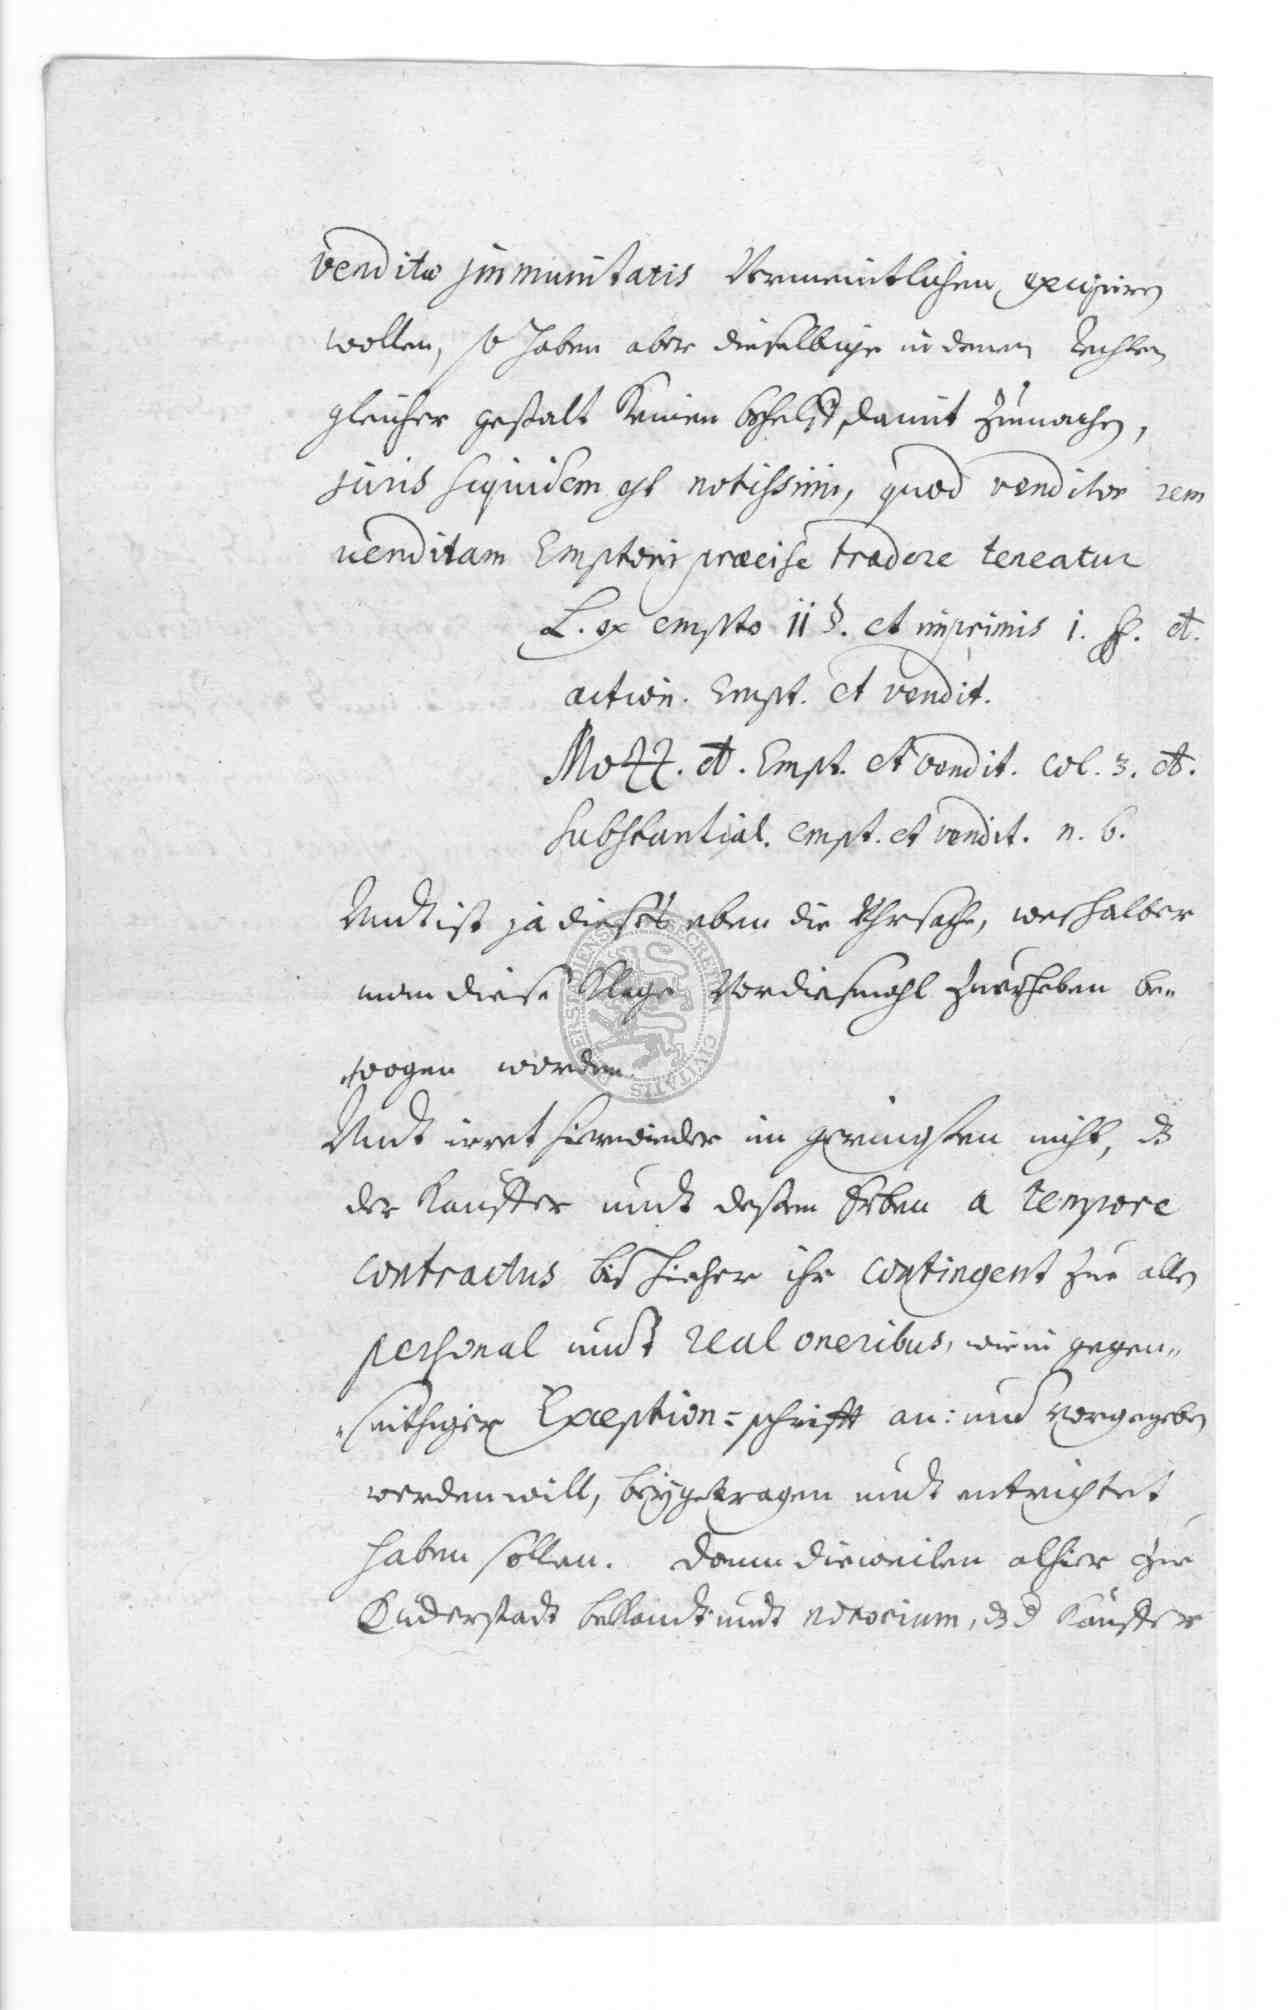 venditæ jmmunitatis Vermeintlichen excipiren
wollen, so haben aber dieselbige in denen Rechten
gleicher gestalt Keinen behelff damit zumachen,
juris siquidem est notissimi, quod venditor rem
venditam Emptori præcise tradere teneatur
L. ex empto ii §. et imprimis i. ff. de.
action. Empt. et vendit.
Mozz. de. Empt. et vendit. col. 3. de.
substantial. empt. et vendit. n. 6.
Undt ist ja dieses eben die Uhrsache, weßhalber
man diese Klage Vordießmahl zuerheben be„
wogen worden.
Undt irret hierwieder im geringsten nicht, dz
der Kauffer undt deßen Erben a tempore
contractus biß hieher ihr contingent zue allen
personal undt real oneribus, wie in gegen„
„seithiger Exception-schrifft an: und vorgegeben
werden will, beÿgetragen undt entrichtet
haben sollen. Dann dieweilen alhier zue
Duderstadt bekandt undt notorium, dz d Kauffer